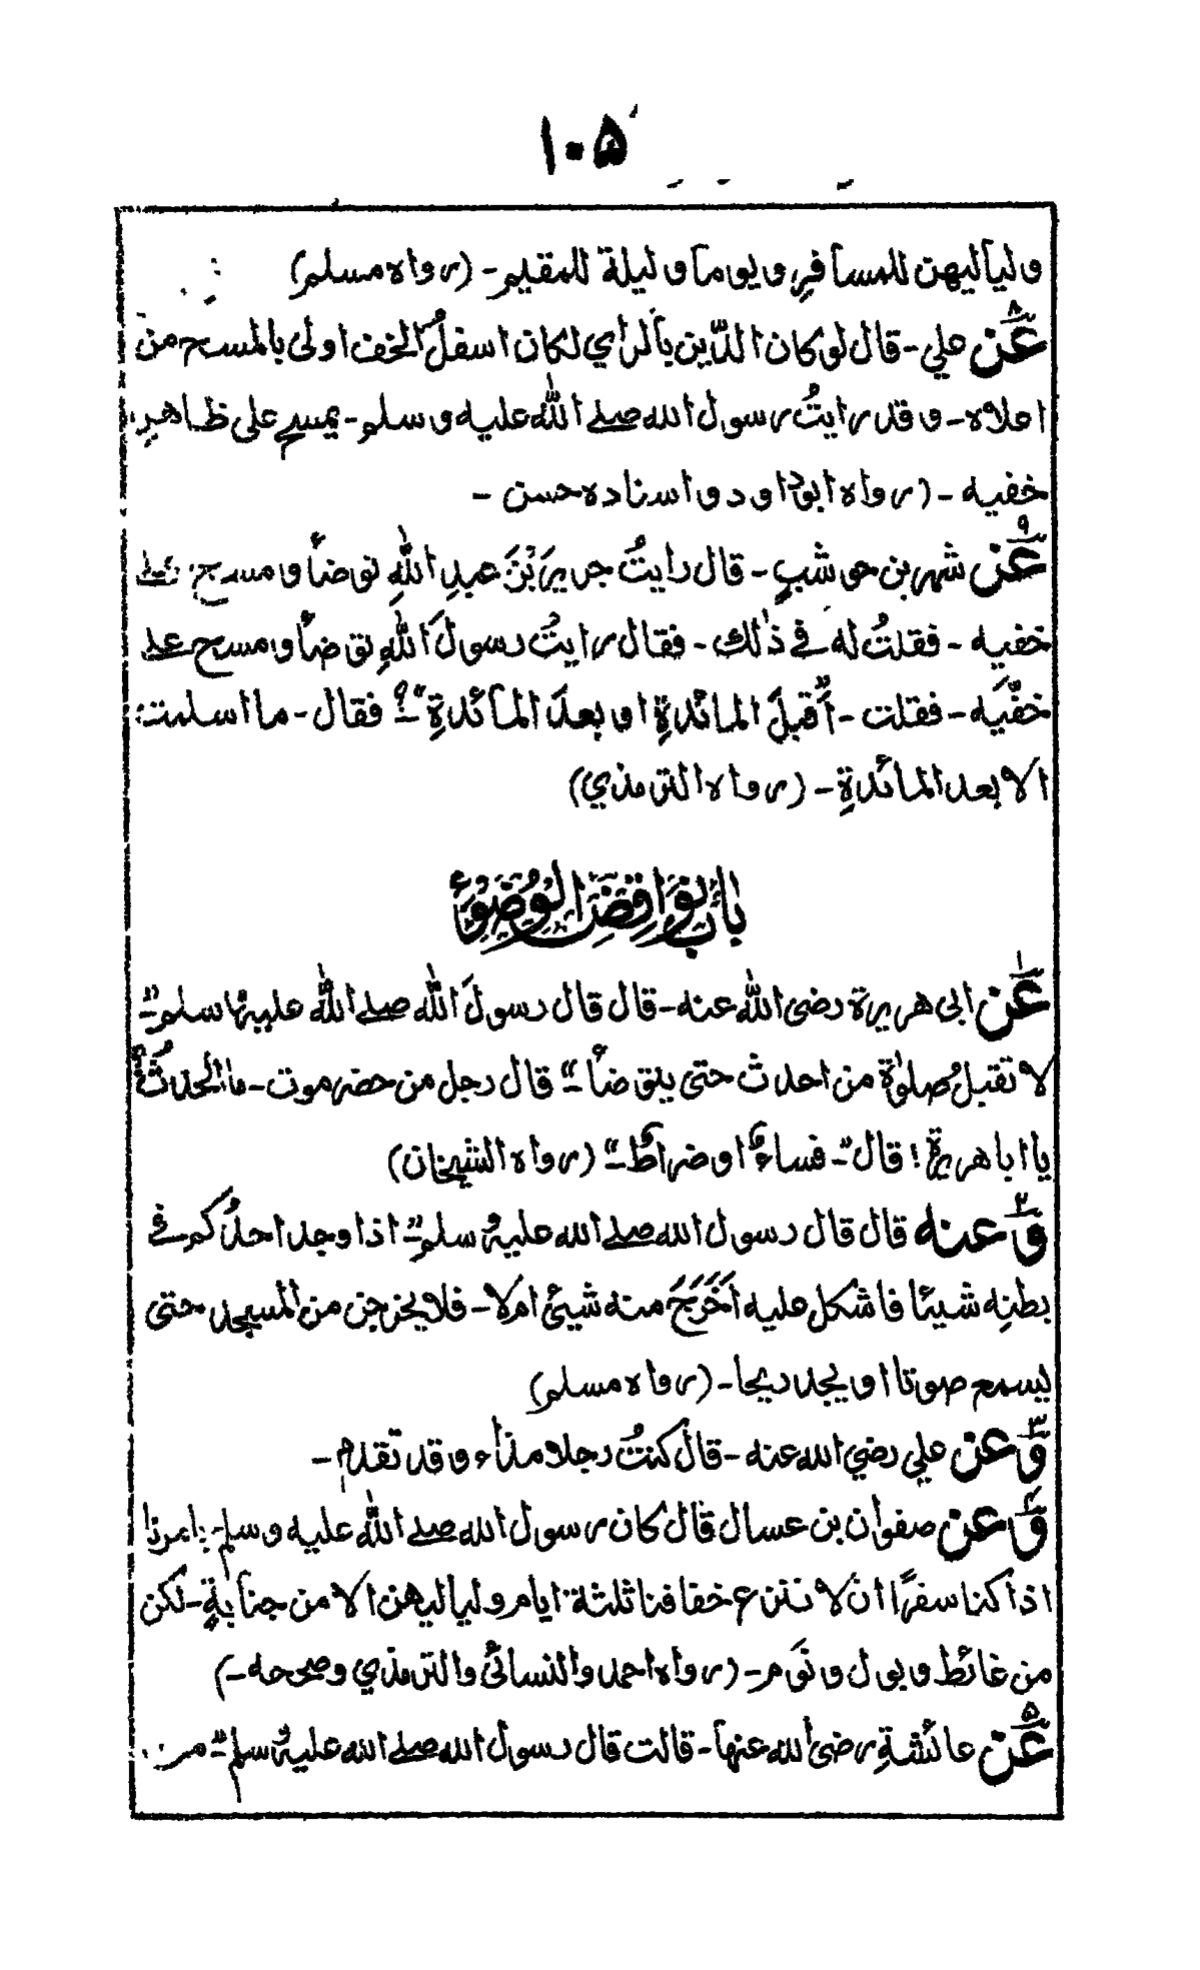 ١٠۵
ولياليهن للمسافرِ ويوما وليلة للمقيم - (رواه مسلم)
٨ عَن علي - قال لو كان الدّين بالرأي لكان اسفلُ الخف اولى بالمسح من
اعلاه - وقد رايتُ رسول الله صلے اللّٰه عليه وسلم - يمسح على ظاهرِ
خفيه - (رواه ابو داود واسناده حسن -
٩ عَن شهر بن حوشبٍ - قال رايتُ جريرَ بْنَ عبدِ اللّٰهِ توضأ ومسح علے
خفيه - فقلتُ له في ذٰلك - فقال رايتُ رسولَ اللّٰهِ توضأ ومسح علے
خفّيه - فقلت - "أقبلَ المائدةِ او بعدَ المائدةِ -؟" فقال - ما اسلمتُ
الا بعد المائدةِ - (رواه الترمذي)
بَابُ نَوَاقِضِ الْوُضُوْءِ
١ عَن ابى هريرة رضى اللّٰه عنه - قال قال رسولُ اللّٰه صلے اللّٰه عليه وسلم "-
لا تقبلُ صلوٰة من احدث حتى يتوضأ -" قال رجل من حضرموت - ما الحدثُ
يا ابا هريرة! قال "- فساءٌ او ضراطٌ -" (رواه الشيخان)
٢ وَعنه قال قال رسول الله صلے الله عليه وسلم "- اذا وجد احدُكم في
بطنِه شيئا فاشكل عليه اَخَرَجَ منه شيئ ام لا - فلا يخرجن من المسجد حتى
يسمع صوتا او يجد ريحا - (رواه مسلم)
٣ وَعن علي رضي الله عنه - قال كنتُ رجلا مذاء وقد تقدم -
٤ وَعن صفوان بن عسال قال كان رسول الله صلے اللّٰه عليه وسلم يامرنا
اذا كنا سفرًا ان لا ننزع خفافنا ثلثة ايام ولياليهن الا من جنابةٍ - لكن
من غائط وبول ونَوم - (رواه احمد والنسائى والترمذي وصححه -)
۵ عَن عائشةِ رضى الله عنها - قالت قال رسول الله صلے الله عليه وسلم "- من